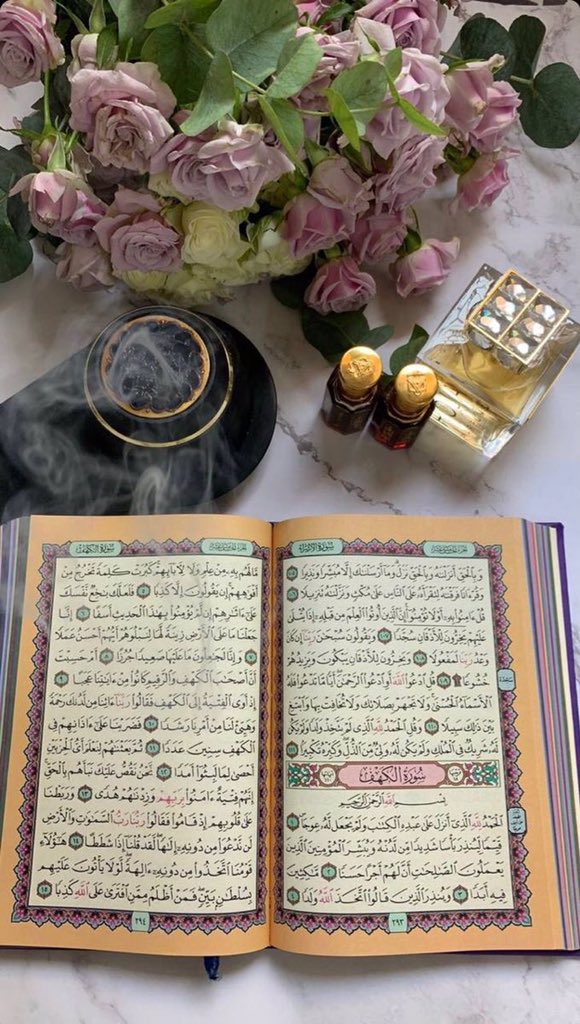 سُورَةُ الإِسْرَاءِ
الجزء الخامس عشر
وَبِٱلْحَقِّ أَنزَلْنَٰهُ وَبِٱلْحَقِّ نَزَلَ وَمَآ أَرْسَلْنَٰكَ إِلَّا مُبَشِّرًا وَنَذِيرًا ١٠٥
وَقُرْءَانًا فَرَقْنَٰهُ لِتَقْرَأَهُۥ عَلَى ٱلنَّاسِ عَلَىٰ مُكْثٍ وَنَزَّلْنَٰهُ تَنزِيلًا ١٠٦
قُلْ ءَامِنُوا۟ بِهِۦٓ أَوْ لَا تُؤْمِنُوٓا۟ إِنَّ ٱلَّذِينَ أُوتُوا۟ ٱلْعِلْمَ مِن قَبْلِهِۦٓ إِذَا يُتْلَىٰ
عَلَيْهِمْ يَخِرُّونَ لِلْأَذْقَانِ سُجَّدًا ١٠٧ وَيَقُولُونَ سُبْحَٰنَ رَبِّنَآ إِن كَانَ
وَعْدُ رَبِّنَا لَمَفْعُولًا ١٠٨ وَيَخِرُّونَ لِلْأَذْقَانِ يَبْكُونَ وَيَزِيدُهُمْ
خُشُوعًا ۩ ١٠٩ قُلِ ٱدْعُوا۟ ٱللَّهَ أَوِ ٱدْعُوا۟ ٱلرَّحْمَٰنَ أَيًّا مَّا تَدْعُوا۟ فَلَهُ
ٱلْأَسْمَآءُ ٱلْحُسْنَىٰ وَلَا تَجْهَرْ بِصَلَاتِكَ وَلَا تُخَافِتْ بِهَا وَٱبْتَغِ
بَيْنَ ذَٰلِكَ سَبِيلًا ١١٠ وَقُلِ ٱلْحَمْدُ لِلَّهِ ٱلَّذِى لَمْ يَتَّخِذْ وَلَدًا وَلَمْ يَكُن
لَّهُۥ شَرِيكٌ فِى ٱلْمُلْكِ وَلَمْ يَكُن لَّهُۥ وَلِىٌّ مِّنَ ٱلذُّلِّ وَكَبِّرْهُ تَكْبِيرًۢا ١١١
سُورَةُ الكَهْفِ
بِسْمِ ٱللَّهِ ٱلرَّحْمَٰنِ ٱلرَّحِيمِ
ٱلْحَمْدُ لِلَّهِ ٱلَّذِىٓ أَنزَلَ عَلَىٰ عَبْدِهِ ٱلْكِتَٰبَ وَلَمْ يَجْعَل لَّهُۥ عِوَجَا ١
قَيِّمًا لِّيُنذِرَ بَأْسًا شَدِيدًا مِّن لَّدُنْهُ وَيُبَشِّرَ ٱلْمُؤْمِنِينَ ٱلَّذِينَ
يَعْمَلُونَ ٱلصَّٰلِحَٰتِ أَنَّ لَهُمْ أَجْرًا حَسَنًا ٢ مَّٰكِثِينَ
فِيهِ أَبَدًا ٣ وَيُنذِرَ ٱلَّذِينَ قَالُوا۟ ٱتَّخَذَ ٱللَّهُ وَلَدًا ٤
٢٩٣
سَجْدَة
الجزء الخامس عشر
سُورَةُ الكَهْفِ
مَّا لَهُم بِهِۦ مِنْ عِلْمٍ وَلَا لِءَابَآئِهِمْ كَبُرَتْ كَلِمَةً تَخْرُجُ مِنْ
أَفْوَٰهِهِمْ إِن يَقُولُونَ إِلَّا كَذِبًا ٥ فَلَعَلَّكَ بَٰخِعٌ نَّفْسَكَ
عَلَىٰٓ ءَاثَٰرِهِمْ إِن لَّمْ يُؤْمِنُوا۟ بِهَٰذَا ٱلْحَدِيثِ أَسَفًا ٦ إِنَّا
جَعَلْنَا مَا عَلَى ٱلْأَرْضِ زِينَةً لَّهَا لِنَبْلُوَهُمْ أَيُّهُمْ أَحْسَنُ عَمَلًا
٧ وَإِنَّا لَجَٰعِلُونَ مَا عَلَيْهَا صَعِيدًا جُرُزًا ٨ أَمْ حَسِبْتَ
أَنَّ أَصْحَٰبَ ٱلْكَهْفِ وَٱلرَّقِيمِ كَانُوا۟ مِنْ ءَايَٰتِنَا عَجَبًا ٩
إِذْ أَوَى ٱلْفِتْيَةُ إِلَى ٱلْكَهْفِ فَقَالُوا۟ رَبَّنَآ ءَاتِنَا مِن لَّدُنكَ رَحْمَةً
وَهَيِّئْ لَنَا مِنْ أَمْرِنَا رَشَدًا ١٠ فَضَرَبْنَا عَلَىٰٓ ءَاذَانِهِمْ فِى
ٱلْكَهْفِ سِنِينَ عَدَدًا ١١ ثُمَّ بَعَثْنَٰهُمْ لِنَعْلَمَ أَىُّ ٱلْحِزْبَيْنِ
أَحْصَىٰ لِمَا لَبِثُوٓا۟ أَمَدًا ١٢ نَّحْنُ نَقُصُّ عَلَيْكَ نَبَأَهُم بِٱلْحَقِّ
إِنَّهُمْ فِتْيَةٌ ءَامَنُوا۟ بِرَبِّهِمْ وَزِدْنَٰهُمْ هُدًى ١٣ وَرَبَطْنَا
عَلَىٰ قُلُوبِهِمْ إِذْ قَامُوا۟ فَقَالُوا۟ رَبُّنَا رَبُّ ٱلسَّمَٰوَٰتِ وَٱلْأَرْضِ
لَن نَّدْعُوَا۟ مِن دُونِهِۦٓ إِلَٰهًا لَّقَدْ قُلْنَآ إِذًا شَطَطًا ١٤ هَٰٓؤُلَآءِ
قَوْمُنَا ٱتَّخَذُوا۟ مِن دُونِهِۦٓ ءَالِهَةً لَّوْلَا يَأْتُونَ عَلَيْهِم
بِسُلْطَٰنٍۭ بَيِّنٍ فَمَنْ أَظْلَمُ مِمَّنِ ٱفْتَرَىٰ عَلَى ٱللَّهِ كَذِبًا ١٥
٢٩٤